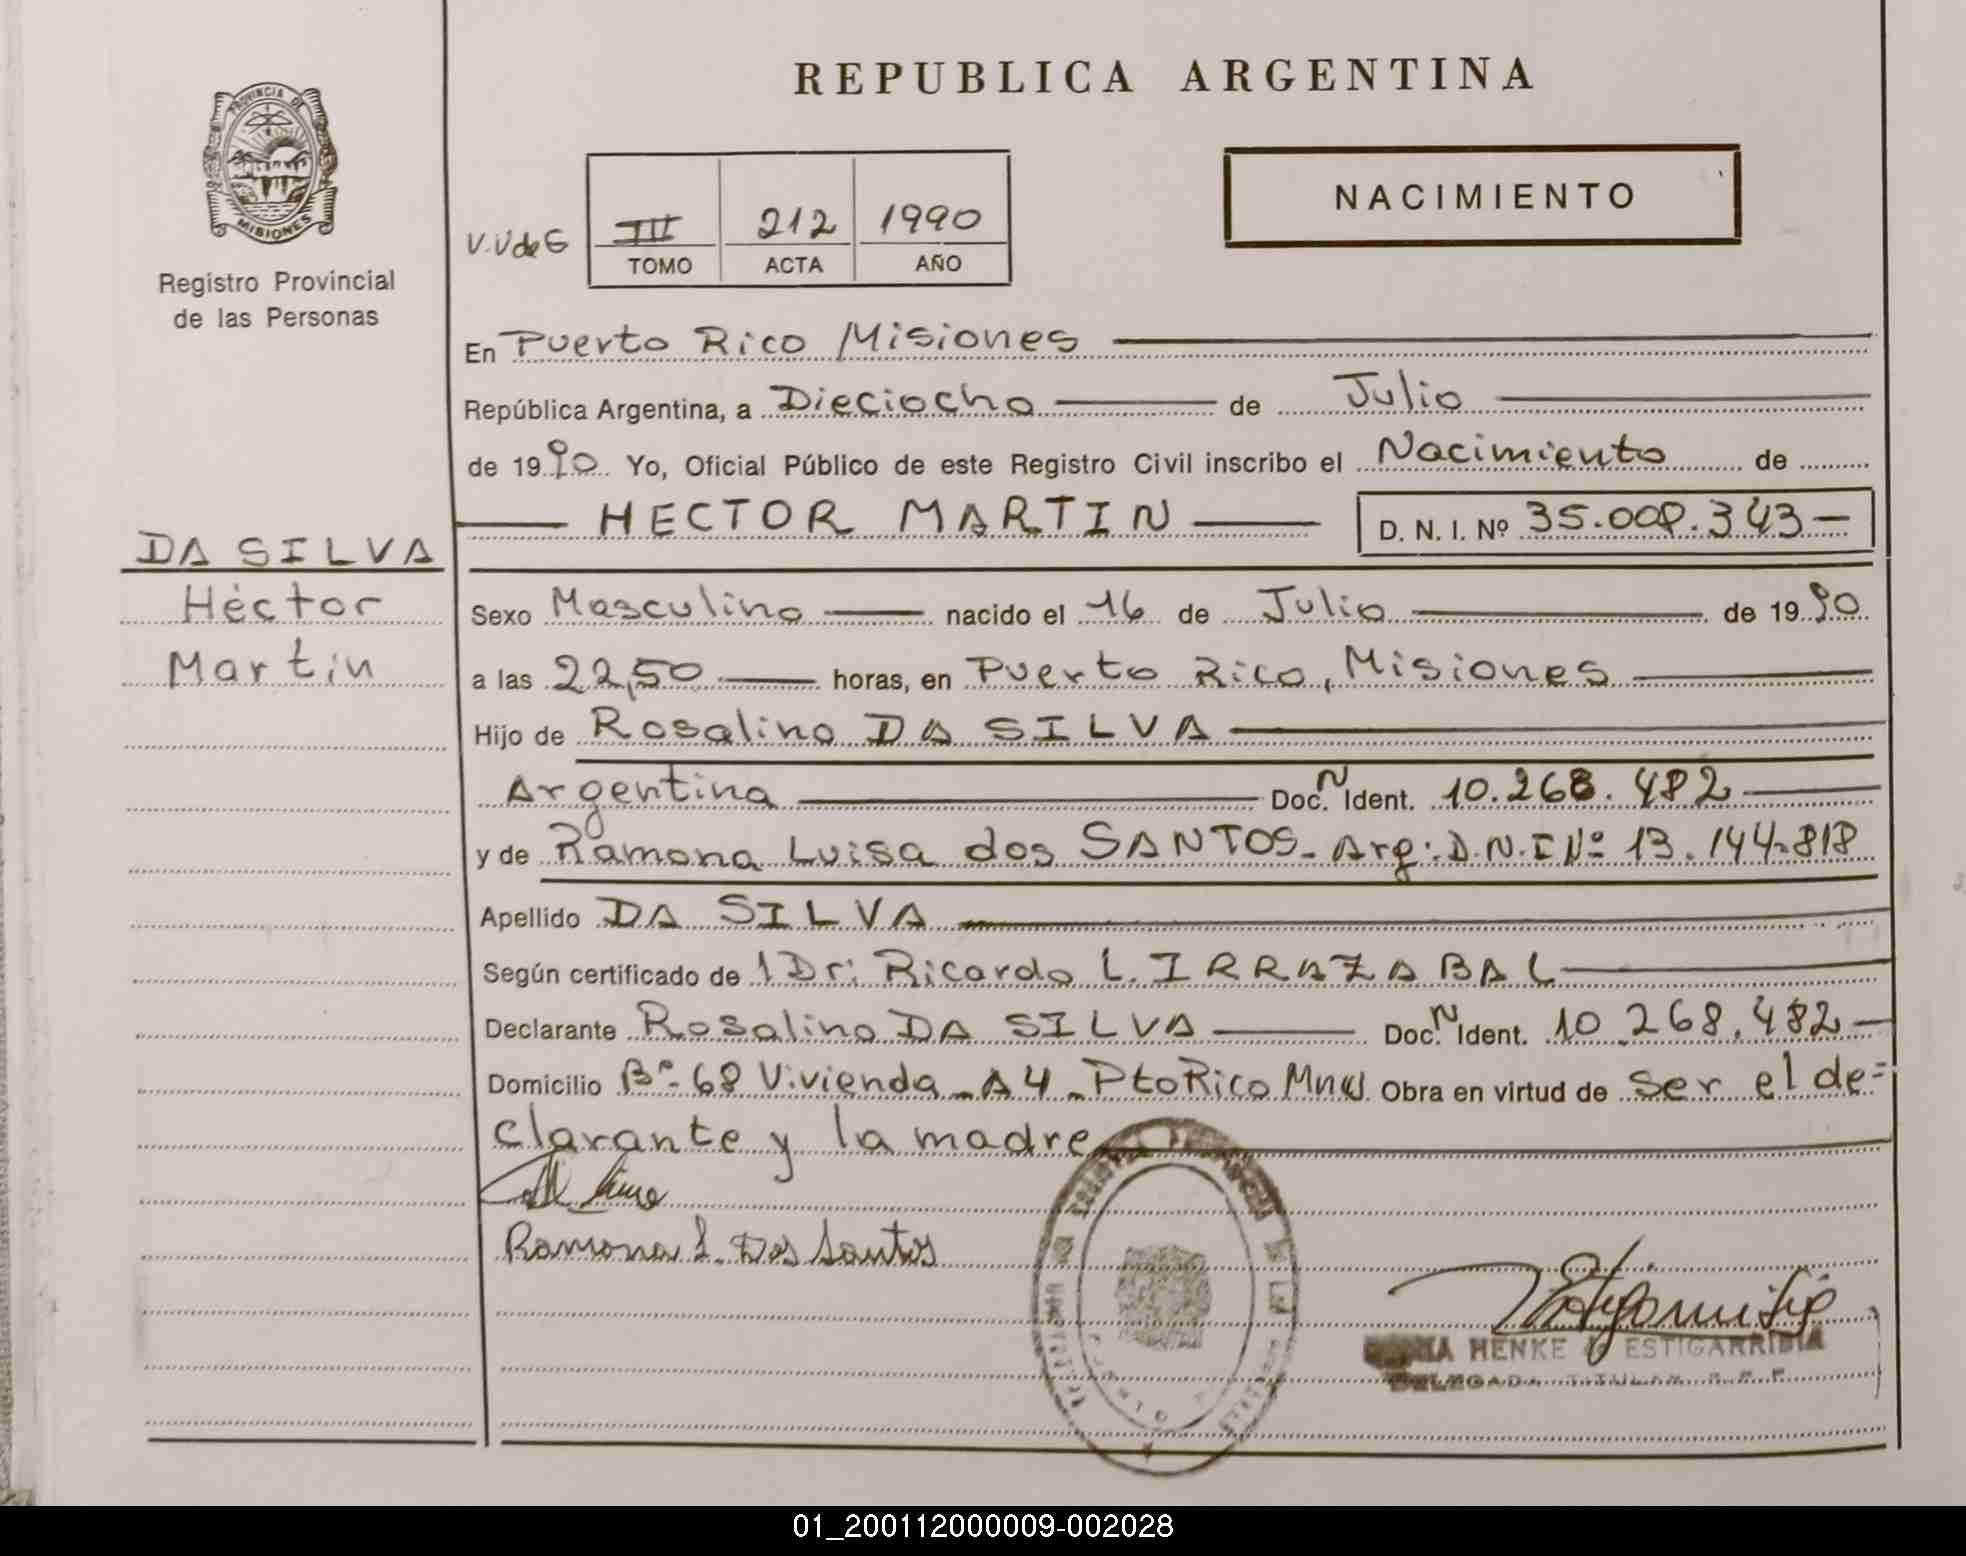 REPUBLICA ARGENTINA
PROVINCIA DE
MISIONES
Registro Provincial
de las Personas
NACIMIENTO
V.V de G
III 212 1990
TOMO ACTA AÑO
En Puerto Rico Misiones
República Argentina, a Dieciocho de Julio
de 1990 Yo, Oficial Público de este Registro Civil inscribo el Nacimiento de
HECTOR MARTIN D. N. I. Nº 35.008.343
DA SILVA
Héctor
Martín
Sexo Masculino nacido el 16 de Julio de 1990
a las 22,50 horas, en Puerto Rico, Misiones
Hijo de Rosalino DA SILVA
Argentina Doc. N Ident. 10.268.482
y de Ramona Luisa dos SANTOS - Arg: D.N.I Nº 13.144.818
Apellido DA SILVA
Según certificado de 1 Dr: Ricardo L. IRRAZABAL
Declarante Rosalino DA SILVA Doc. N Ident. 10.268.482
Domicilio Bº 68 Vivienda - A4 - Pto Rico Mnes Obra en virtud de Ser el de=
clarante y la madre
Ramona L. Dos Santos
HENKE de ESTIGARRIBIA
DELEGADA TITULAR R.P.P.
01_200112000009-002028